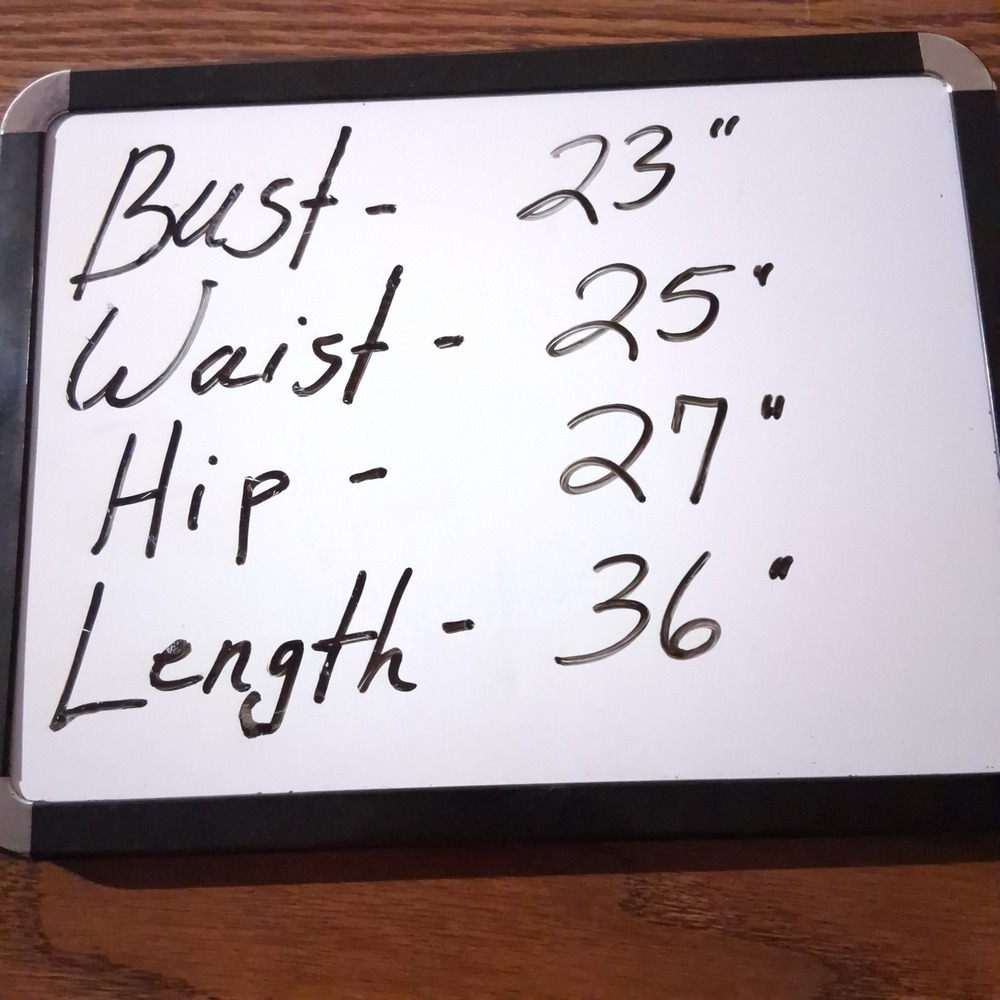 Bust - 23"
Waist - 25"
Hip - 27"
Length - 36"